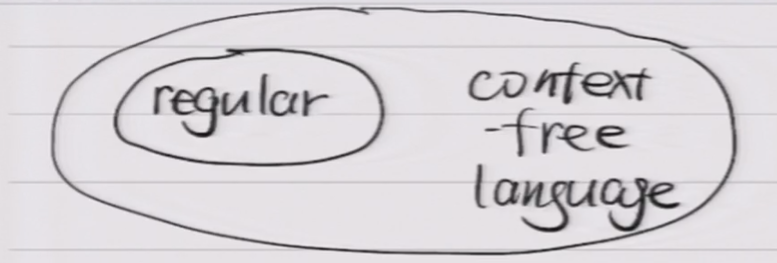 regular
context
-free
language